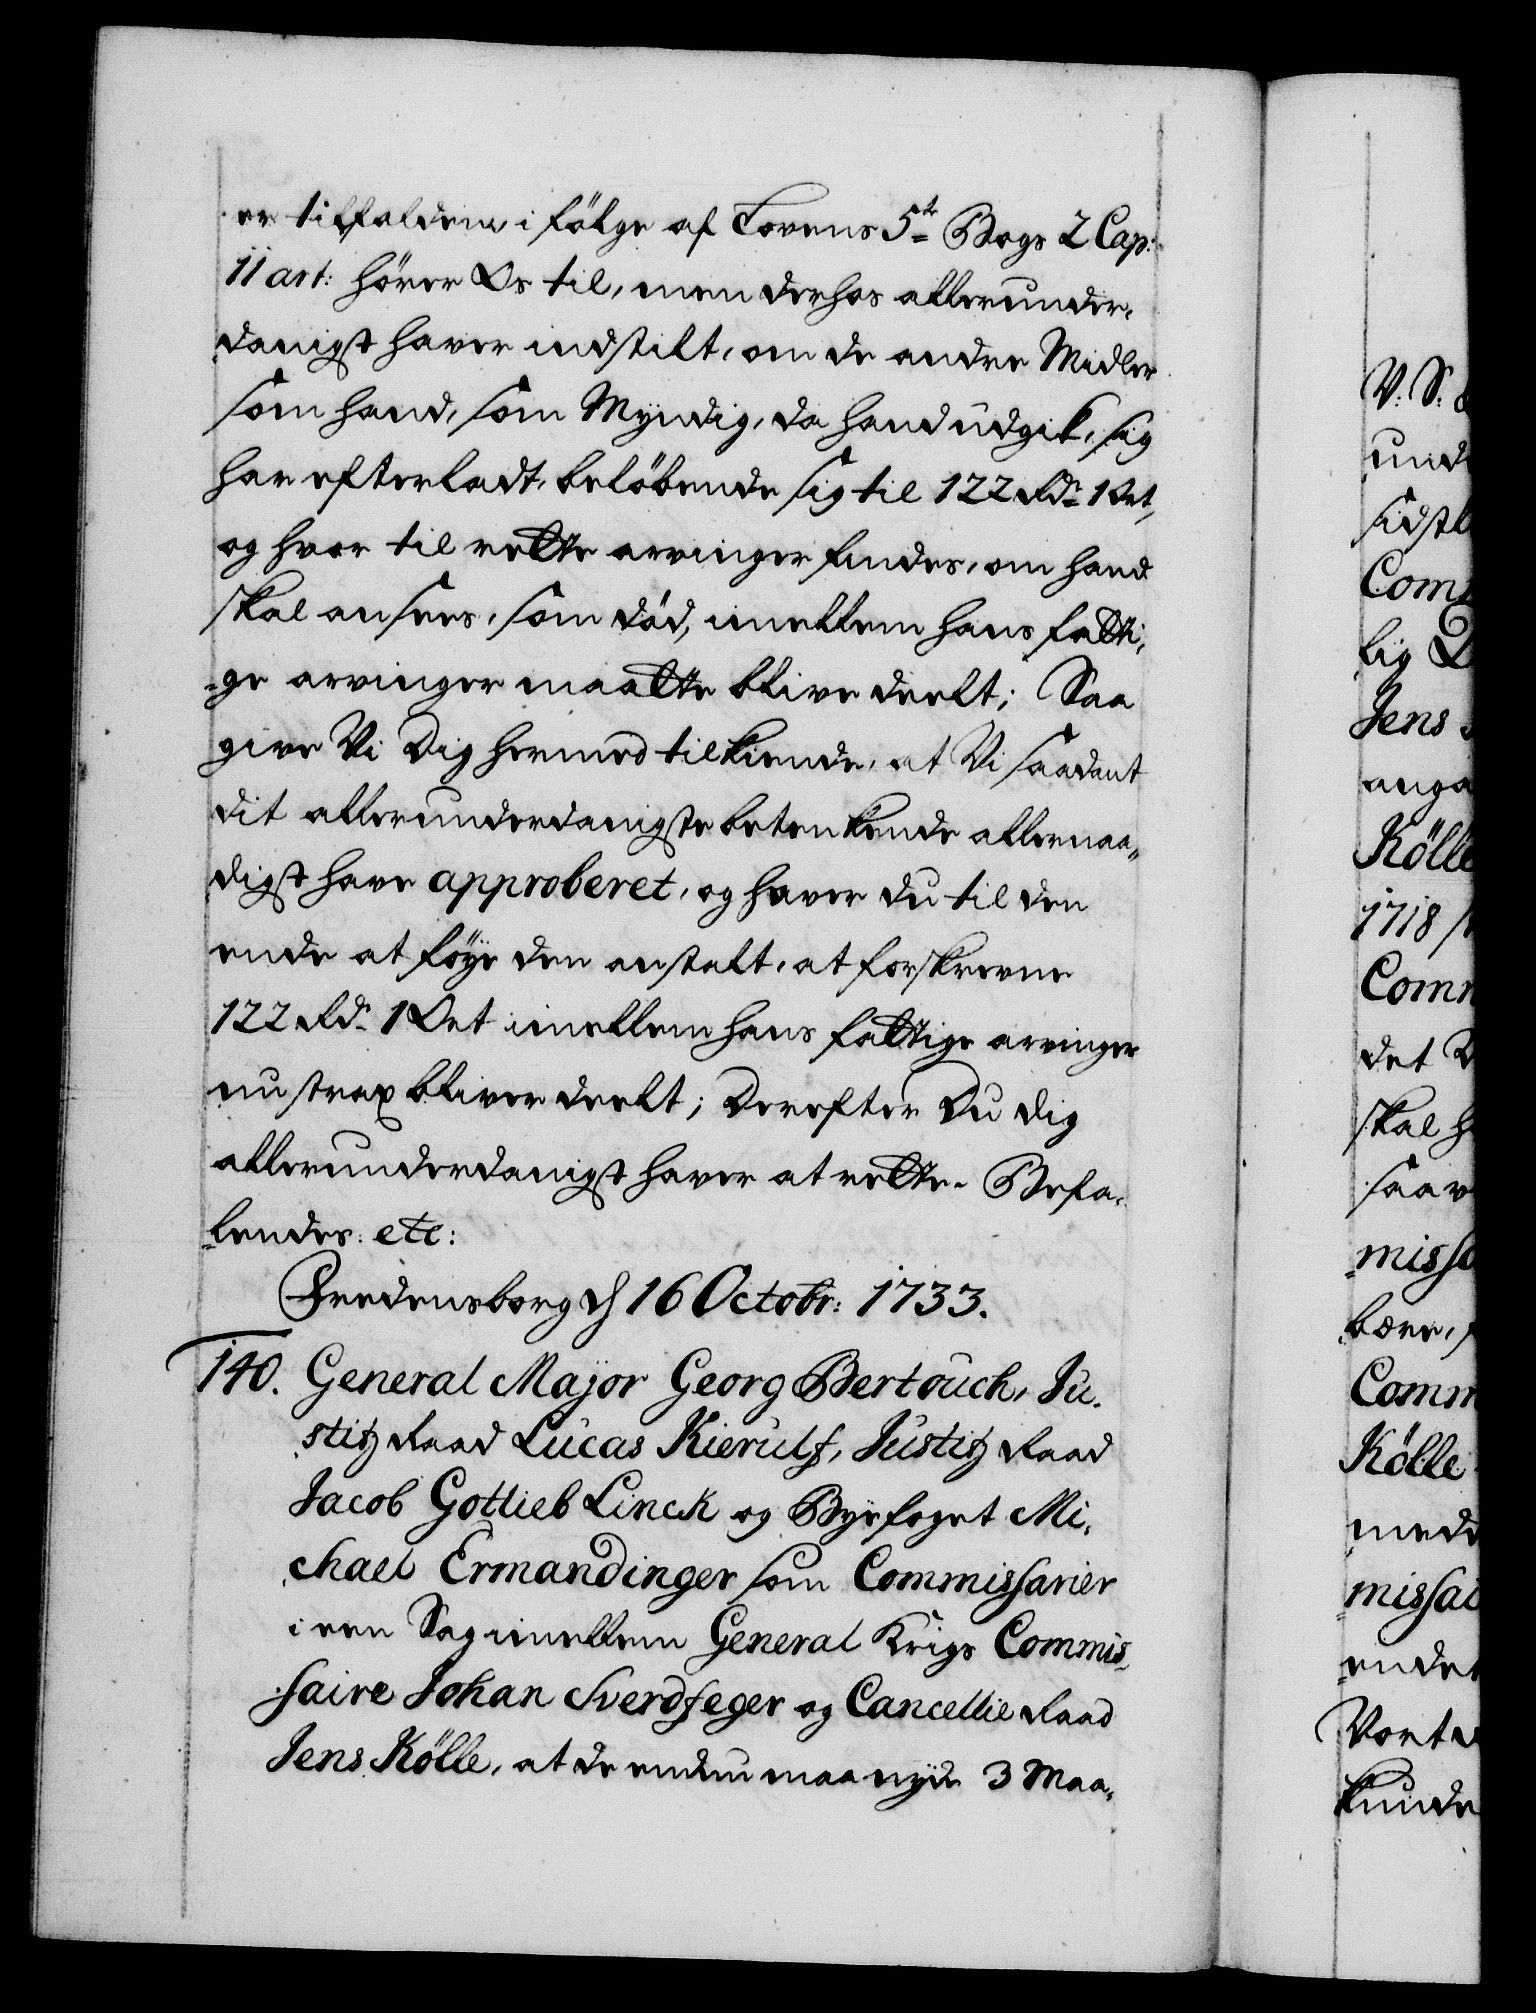 er tilfalden, i fölge af Lovens 5te Bogs 2 Cap:
11 art: hörer Os til, men derhos allerunder,
danigst haver indstilt, om de andre Midler
som hand, som Myndig, da hand udgik, sig
har efterladt, belöbende sig til 122 Rdr 1 Ort,
og hvor til rette arvinger findes, om hand
skal ansees, som död, imellem hans fatti,
ge arvinger maatte blive deelt; Saa
give Vi Dig hermed tilkiende, at Vi saadant
dit allerunderdanigste betenkende allernaa„
digst have approberet, og haver du til den
ende at föye den anstalt, at forskrevne
122 Rdr 1 Ort imellem hans fattige arvinger
nu strax bliver deelt; Derefter Du dig
allerunderdanigst haver at rette. Befa„
lendes: etc:
Fredensborg d 16 Octobr: 1733.
140. General Major Georg Bertouch, Ju„
stitz Raad Lucas Kierulf, Justitz Raad
Jacob Gotlieb Linck og Byefoget Mi„
chael Ermandinger som Commissarier
i een Sag imellem General Krigs Commis„
saire Johan Sverdfeger og Cancellie Raad
Jens Kölle, at de endnu maa nyde 3 Maa„
V: S:
und
sidstl
Com
lig
Jens
anga
Kölle
1718
Com
det
skal h
saav
misso
bære,
Comm
Kölle
medd
missai
endet
Vort
kunde